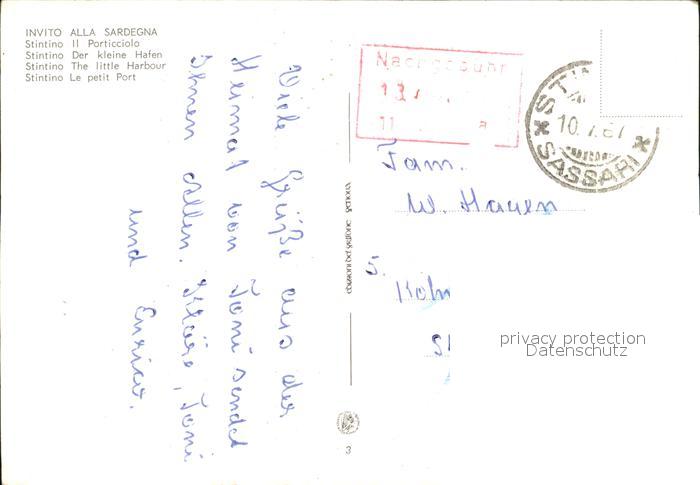 INVITO ALLA SARDEGNA
Stintino Il Porticciolo
Stintino Der kleine Hafen
Stintino The little Harbour
Stintino Le petit Port
Viele Grüße aus der
Heimat von Toni sendet
Ihnen allen. Kläre, Toni
und Enrico.
Nachgebühr
13
11
10.7.67
SASSARI
Fam.
W. Hauen
5. Köln
edizioni del grifone genova
3
privacy protection
Datenschutz